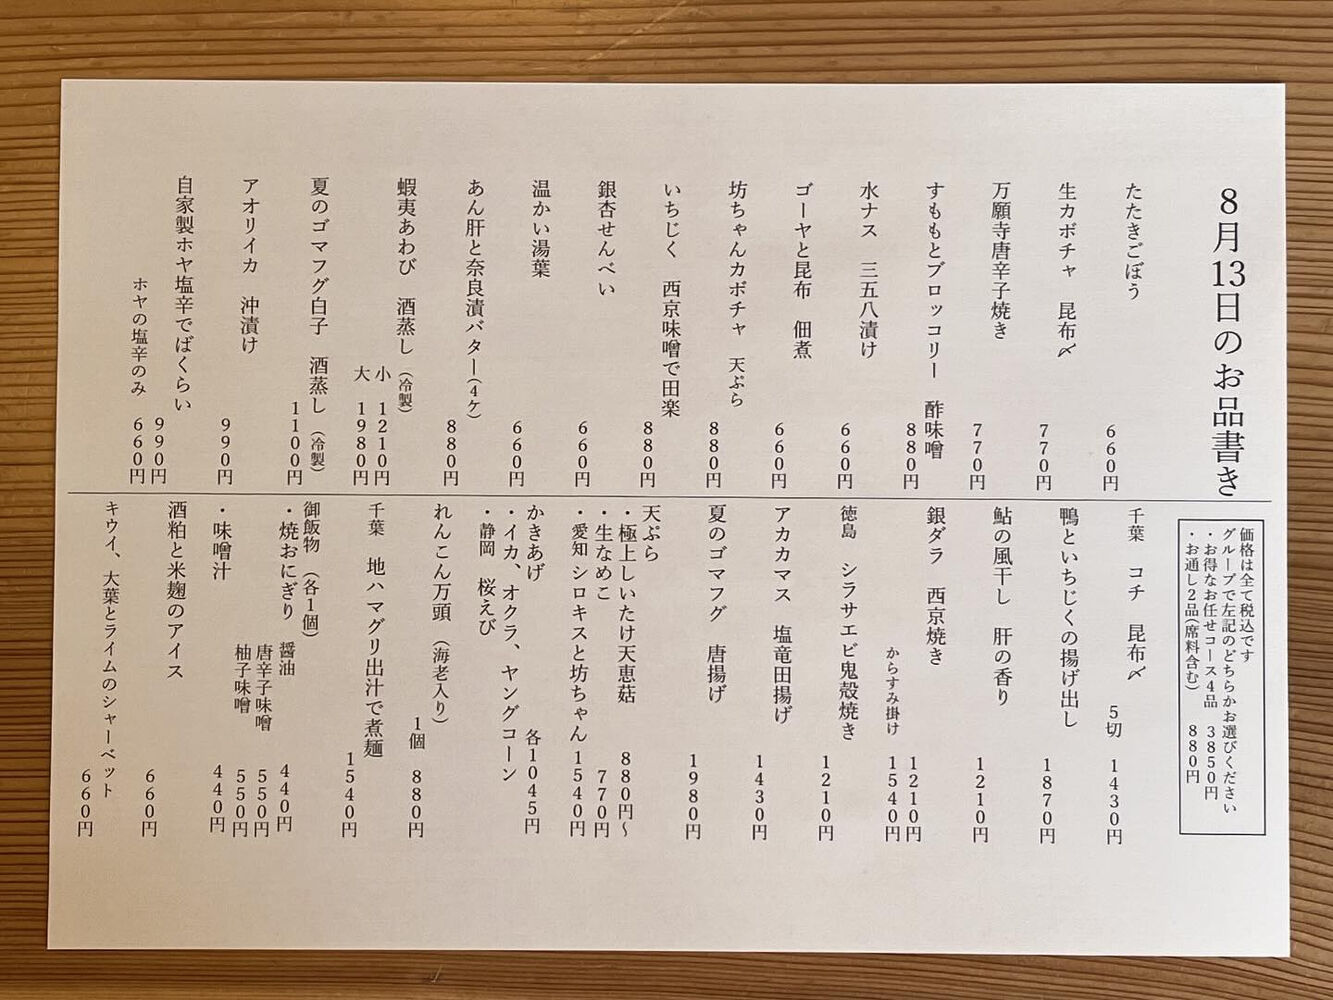 8月13日のお品書き
たたきごぼう 660円
生カボチャ 昆布〆 770円
万願寺唐辛子焼き 770円
すももとブロッコリー 酢味噌 880円
水ナス 三五八漬け 660円
ゴーヤと昆布 佃煮 660円
坊ちゃんカボチャ 天ぷら 880円
いちじく 西京味噌で田楽 880円
銀杏せんべい 660円
温かい湯葉 660円
あん肝と奈良漬バター(4ケ) 880円
蝦夷あわび 酒蒸し(冷製)
小 1210円
大 1980円
夏のゴマフグ白子 酒蒸し(冷製) 1100円
アオリイカ 沖漬け 990円
自家製ホヤ塩辛でばくらい 990円
ホヤの塩辛のみ 660円
価格は全て税込です
グループで左記のどちらかお選びください
・お得なお任せコース4品 3850円
・お通し2品(席料含む) 880円
千葉 コチ 昆布〆 5切 1430円
鴨といちじくの揚げ出し 1870円
鮎の風干し 肝の香り 1210円
銀ダラ 西京焼き 1210円
からすみ掛け 1540円
徳島 シラサエビ鬼殻焼き 1210円
アカカマス 塩竜田揚げ 1430円
夏のゴマフグ 唐揚げ 1980円
天ぷら
・極上しいたけ天恵菇 880円〜
・生なめこ 770円
・愛知 シロキスと坊ちゃん 1540円
かきあげ 各1045円
・イカ、オクラ、ヤングコーン
・静岡 桜えび
れんこん万頭(海老入り) 1個 880円
千葉 地ハマグリ出汁で煮麺 1540円
御飯物(各1個)
・焼おにぎり 醤油 440円
唐辛子味噌 550円
柚子味噌 550円
・味噌汁 440円
酒粕と米麹のアイス 660円
キウイ、大葉とライムのシャーベット 660円